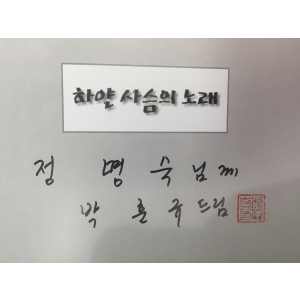 하얀 사슴의 노래
정 명 숙 님께
박 훈 규 드림